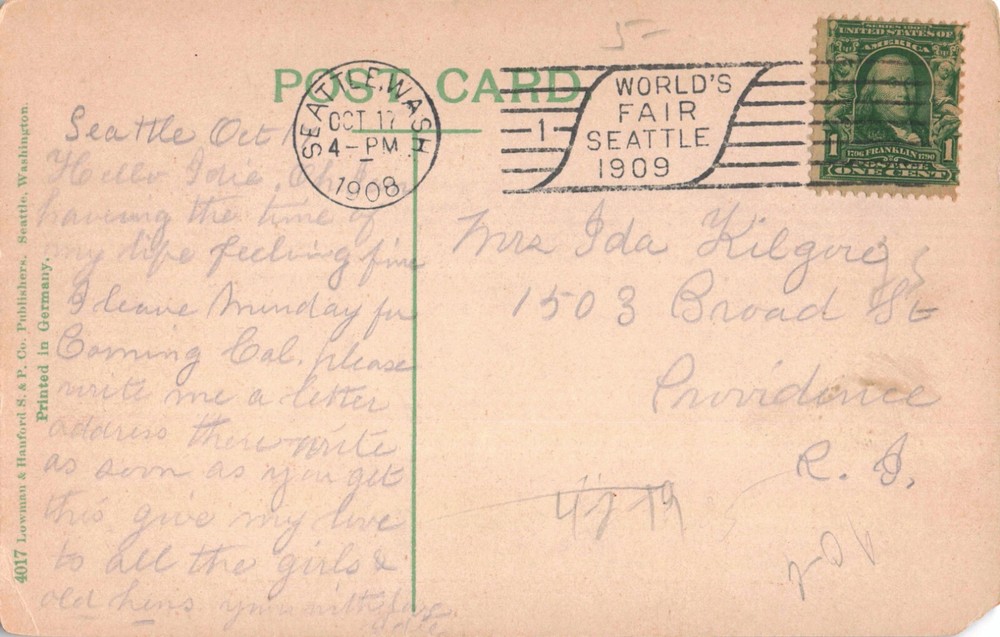 POST CARD
SEATTLE, WASH
OCT 17
4-PM
1908
1
WORLD'S
FAIR
SEATTLE
1909
SERIES 1902
UNITED STATES OF
AMERICA
1706 FRANKLIN 1790
1 POSTAGE 1
ONE CENT
5-
Seattle Oct 1
Hello Idie,
haveing the time of
my life feeling fine
I leave Munday for
Corning Cal. please
write me a letter
address there write
as soon as you get
this give my love
to all the girls &
old hens
Mrs Ida Kilgore
1503 Broad St
Providence
R. I.
4017 Lowman & Hanford S. & P. Co. Publishers. Seattle, Washington.
Printed in Germany.